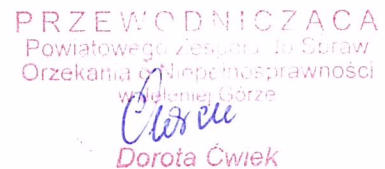 PRZEWODNICZACA
Powiatowego Zespołu do Spraw
Orzekania o Niepełnosprawności
w Jeleniej Górze
Dorota Ćwiek